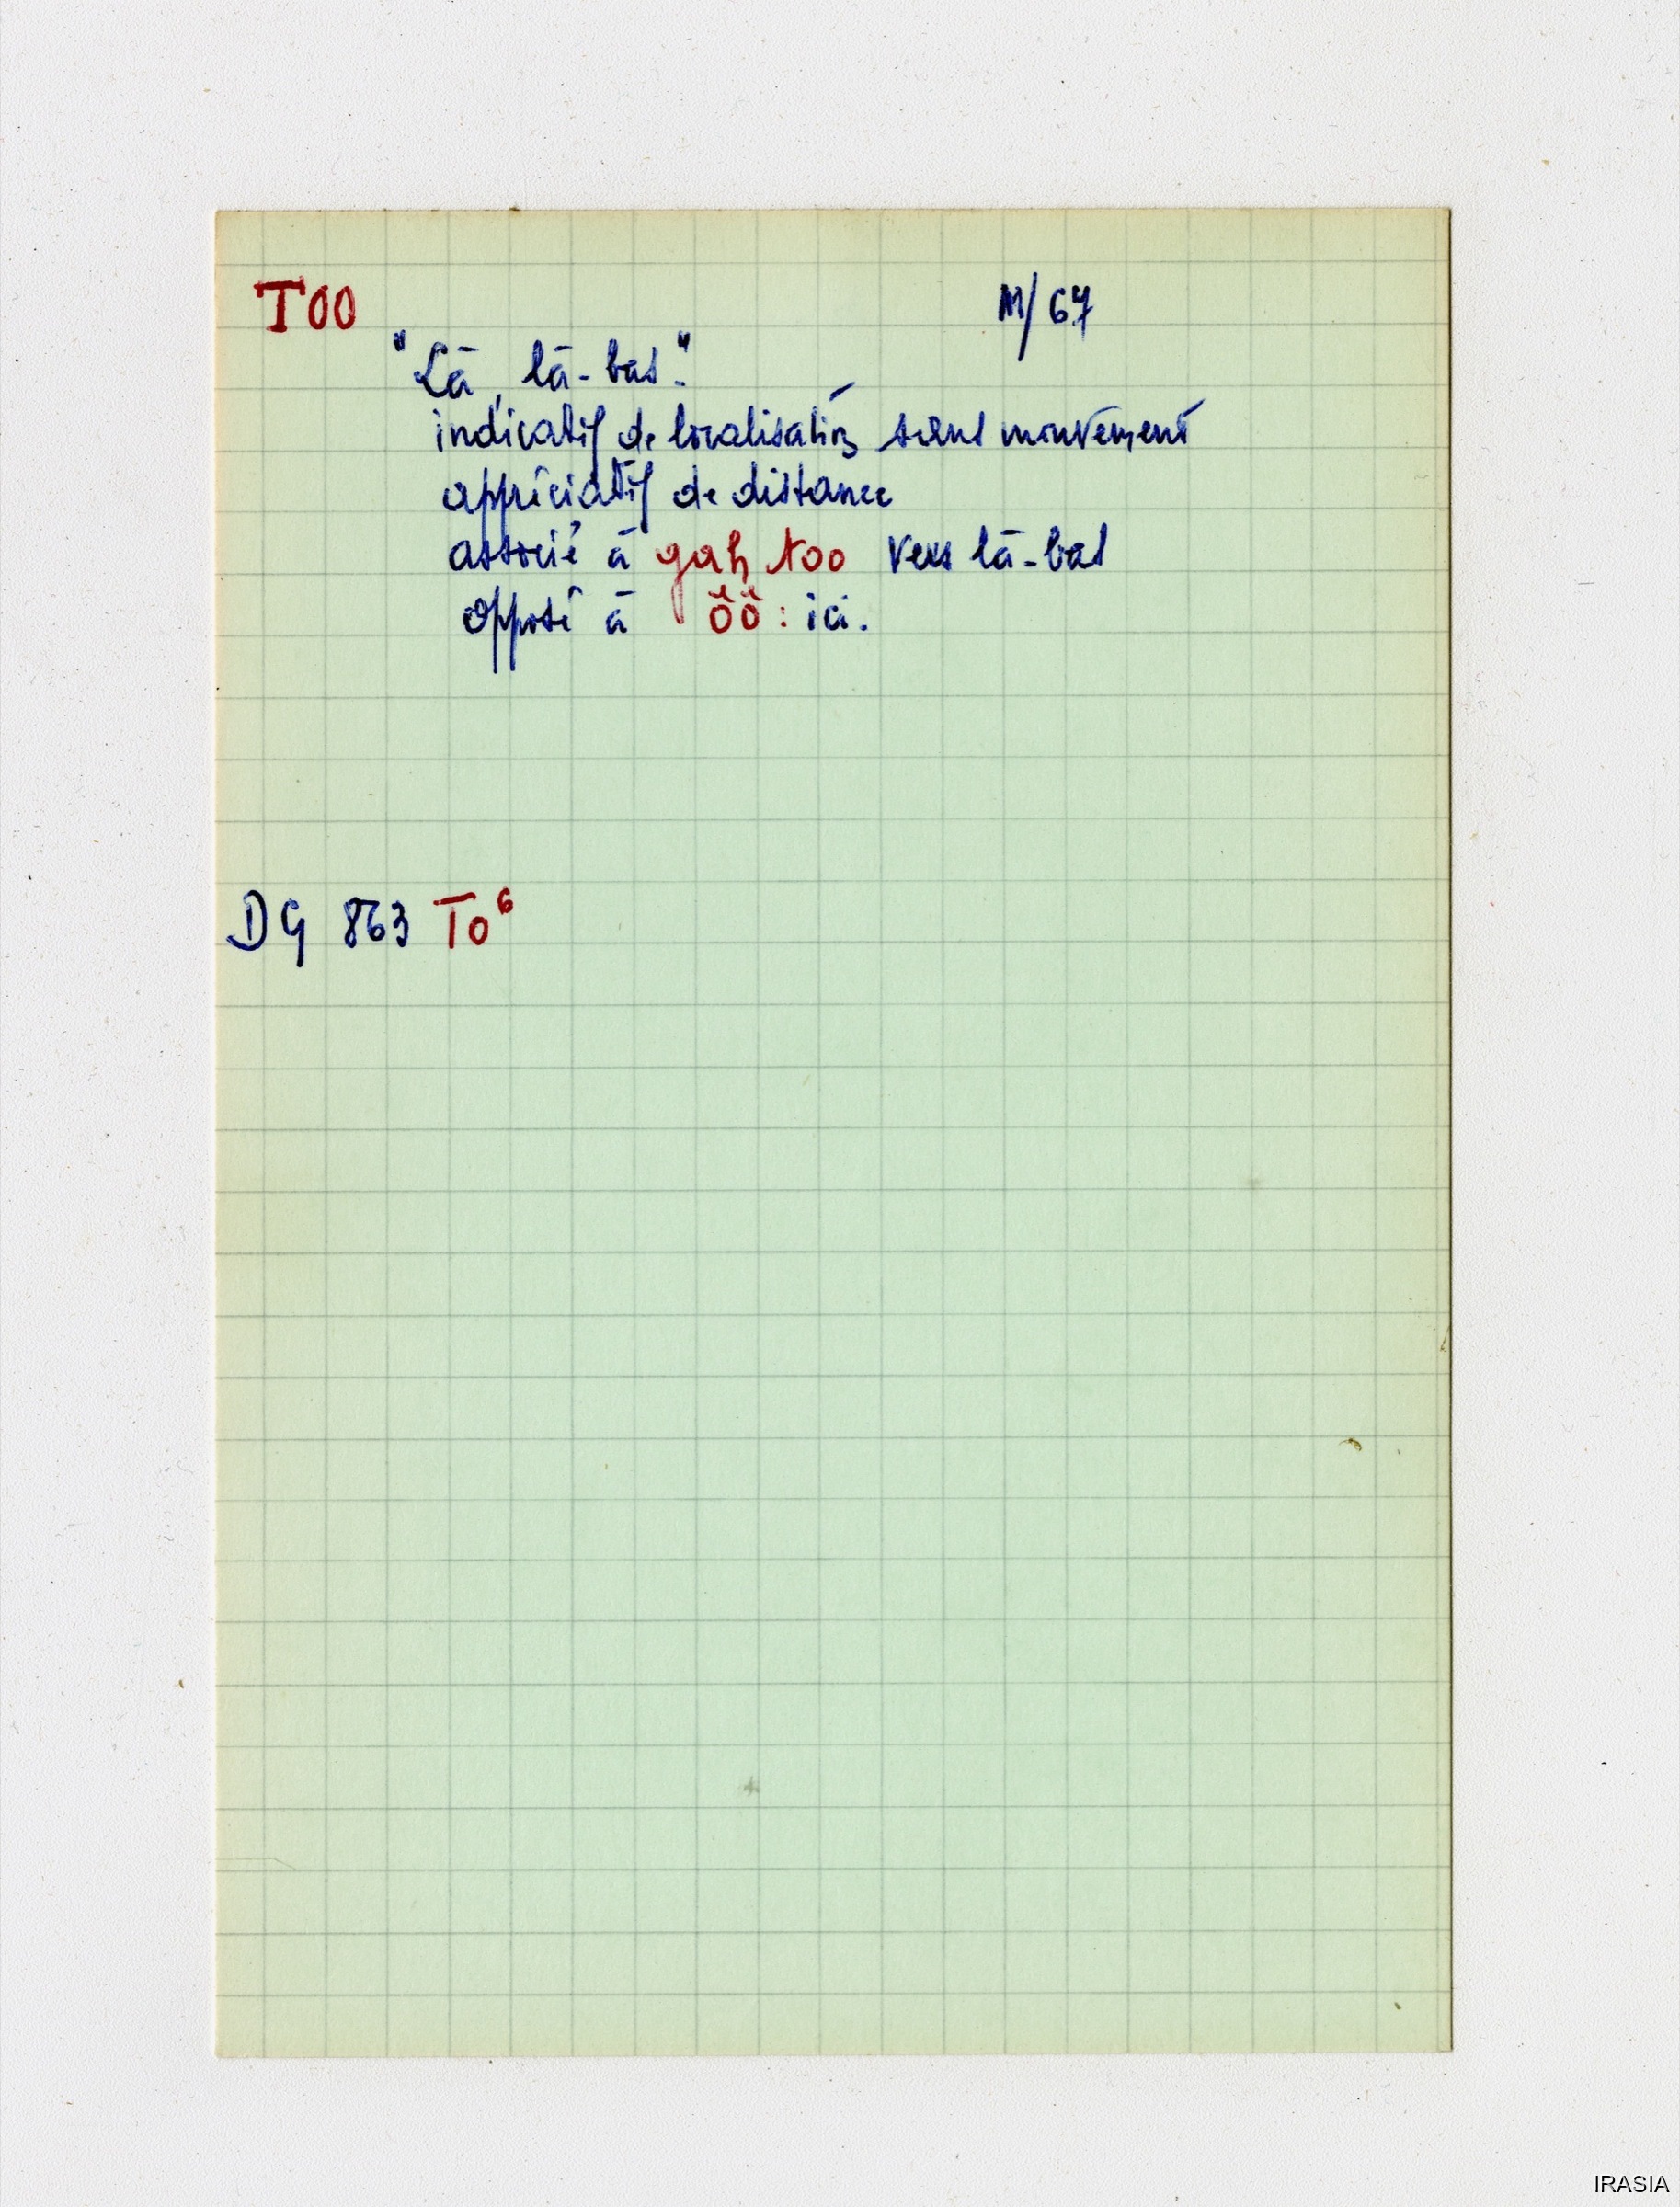 TOO M/67
"Là, là-bas."
indicatif de localisation sans mouvement
appréciatif de distance
associé à gah too vers là-bas
opposé à ŏŏ : ici.
DG 863 To⁶
IRASIA